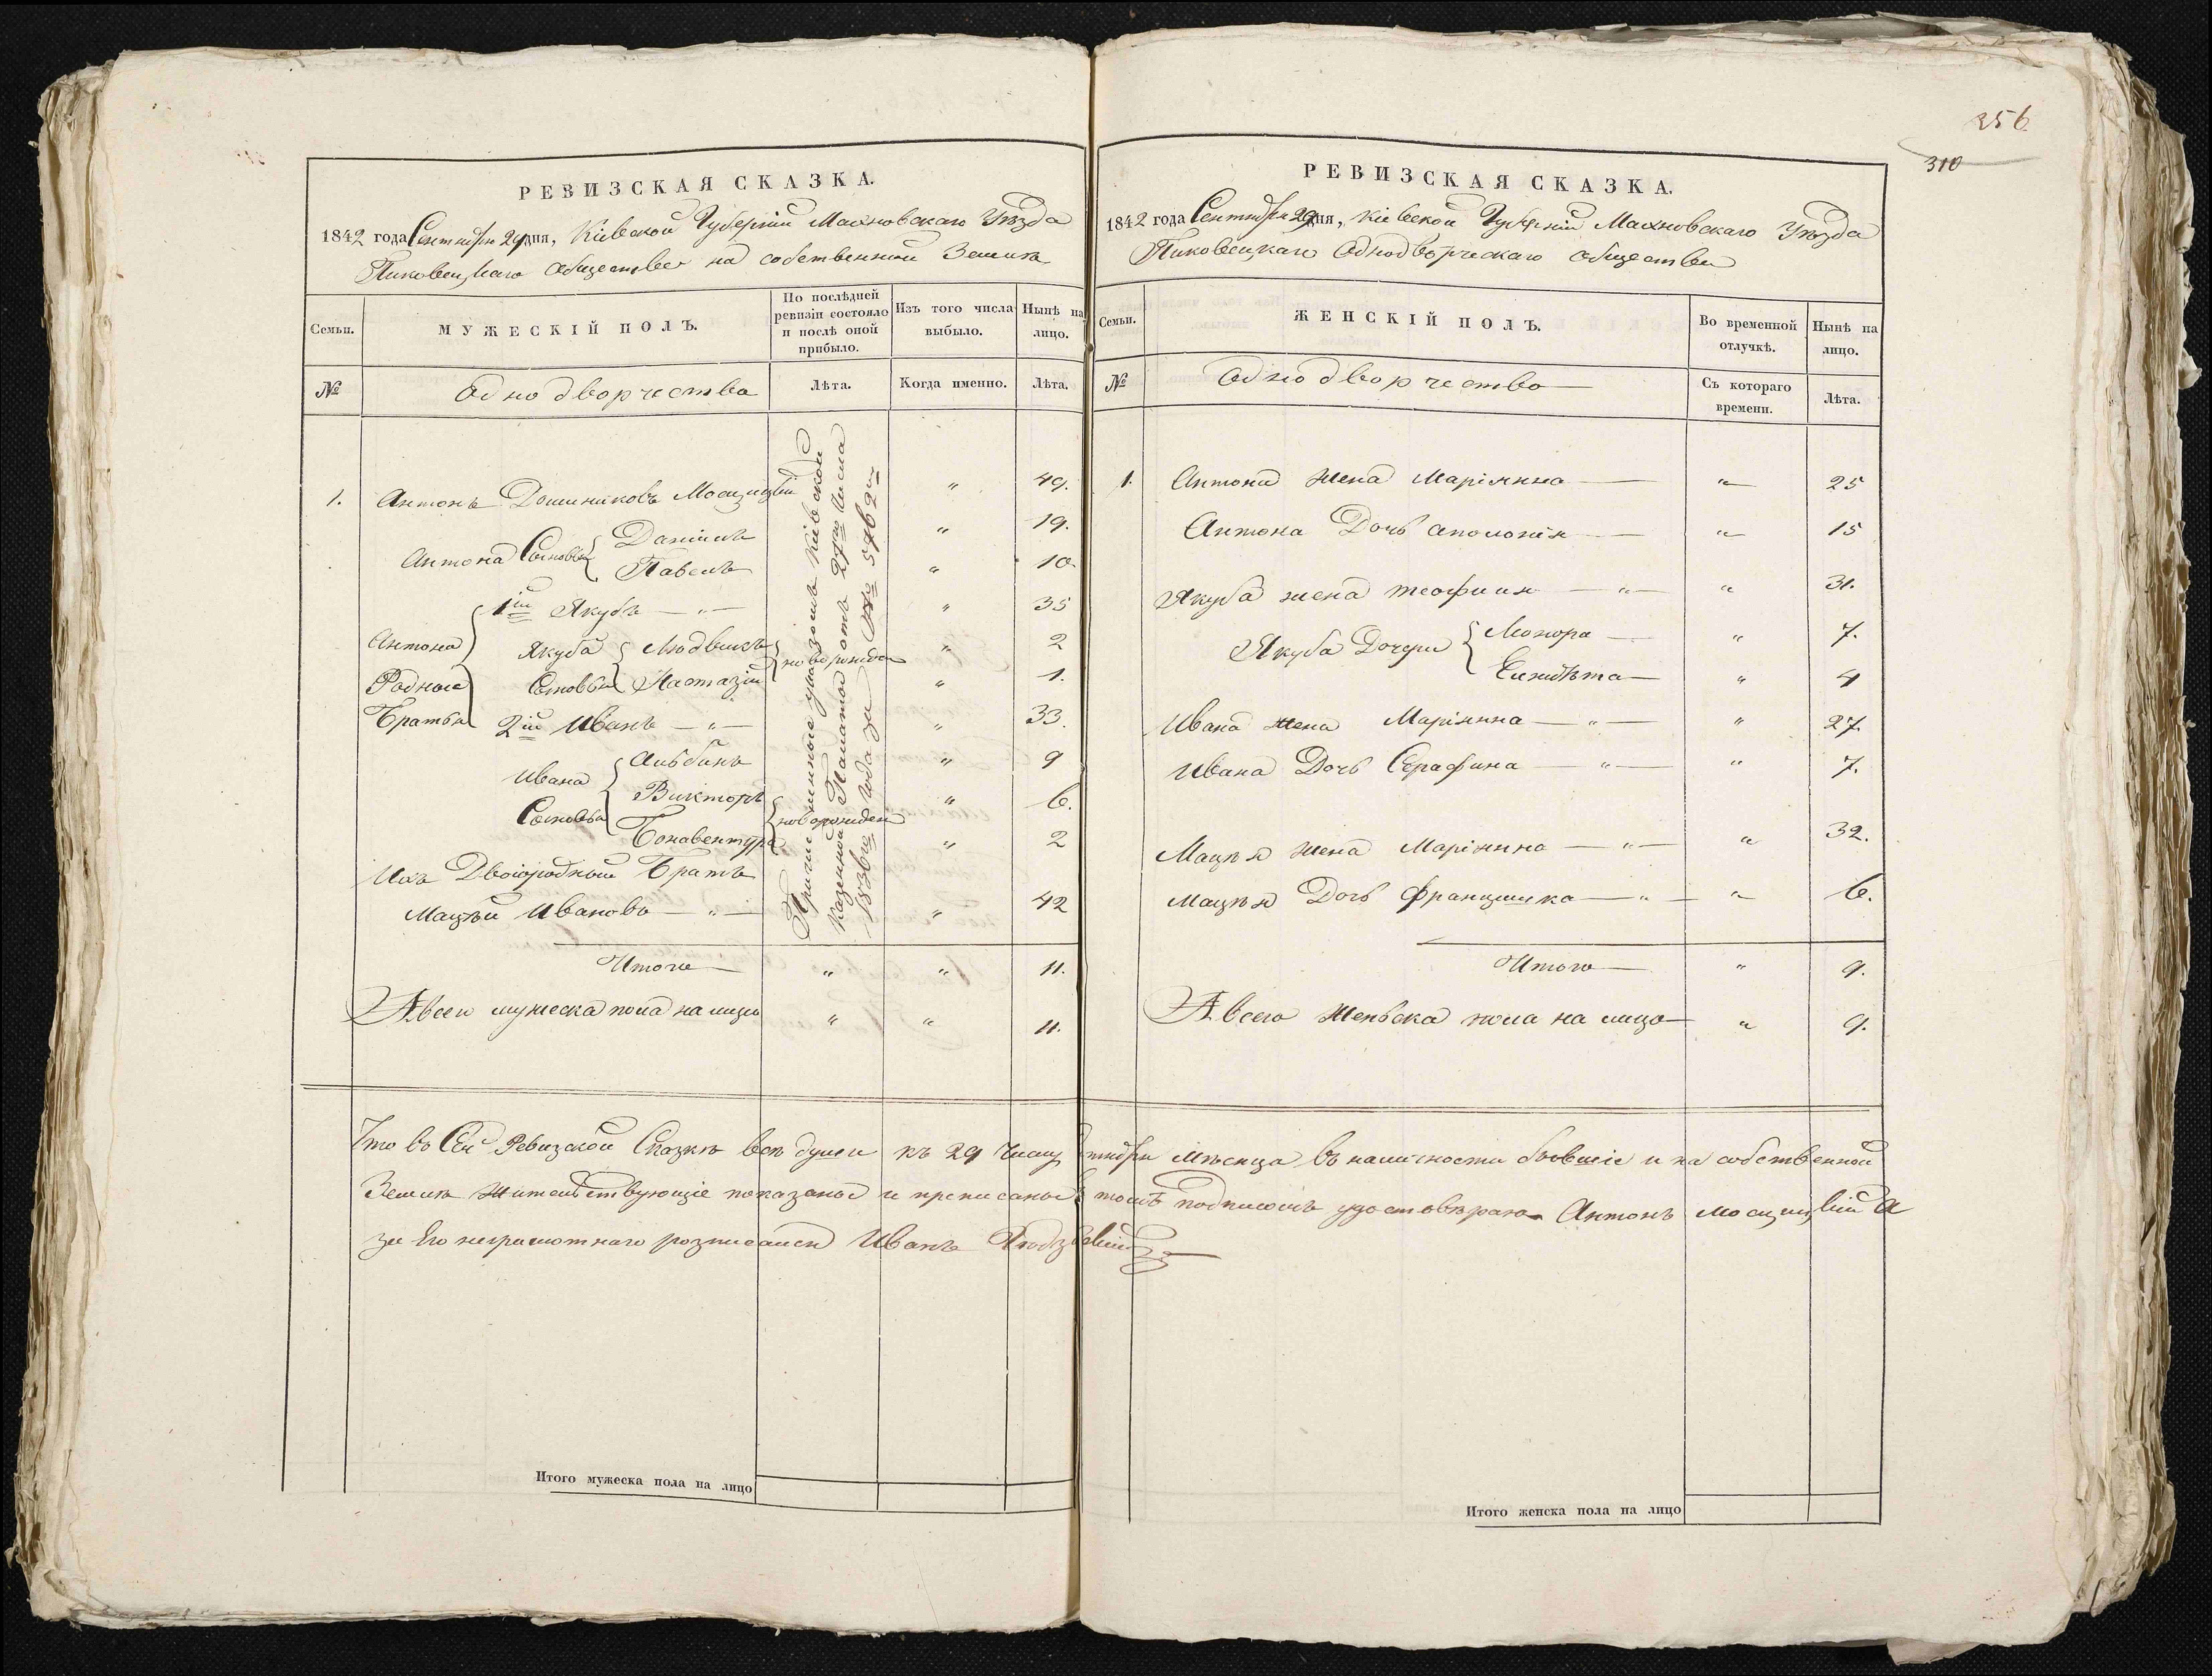 256
310
РЕВИЗСКАЯ СКАЗКА.
1842 года Сентября 29 дня, Кіевской Губерніи Махновскаго Уѣзда
Пиковецкаго общества на собственной Землѣ
Семьи.
МУЖЕСКІЙ ПОЛЪ.
По послѣдней ревизіи состояло и послѣ оной прибыло.
Изъ того числа выбыло.
Нынѣ на лицо.
№
Однодворчества
Лѣта.
Когда именно.
Лѣта.
Причисленные указомъ Кіевской
Казенной Палаты отъ 27го Числа
1836го года за №
1. Антонъ Доминиковъ Мощицкій " 49.
Антона Сыновья { Даніилъ " 19.
Павелъ " 10.
Антона Родные Братья
1й Якубъ — " — " 35
Якуба Сыновья { Людвикъ } новорожден " 2
Настазій " 1.
2й Иванъ — " — " 33.
Ивана Сыновья { Альбинъ " 9
Викторъ " 6.
Бонавентура } новорожден " 2
Ихъ Двоюродный Братъ
Мацѣй Ивановъ — " — " 42
Итого — " " 11.
А всего мужеска пола на лицо " " 11.
РЕВИЗСКАЯ СКАЗКА.
1842 года Сентября 29 дня, Кіевской Губерніи Махновскаго Уѣзда
Пиковецкаго Однодворческаго общества
Семьи.
ЖЕНСКІЙ ПОЛЪ.
Во временной отлучкѣ.
Нынѣ на лицо.
№
Однодворчество
Съ котораго времени.
Лѣта.
1. Антона жена Маріянна — " 25
Антона Дочь аполонія — " 15
Якуба жена теофиля — " — " 31.
Якуба Дочери { " 7.
— " 4
Ивана жена Маріянна — " — " 27.
Ивана Дочь Серафина — " — " 7.
Мацѣя жена Маріянна — " — " 32.
Мацѣя Дочь францишка — " — " 6.
Итого — " 9.
А всего женьска пола на лицо — " 9.
Что въ Сей Ревизской Сказкѣ всѣ души къ 29 Числу Сентября мѣсяца въ наличности бывшіе и на собственной
Землѣ жительствующіе показаны и прописаны в томъ подписомъ удостовѣраю Антонъ Мощицкій а
за Его неграмотнаго розписался Иванъ
Итого мужеска пола на лицо
Итого женска пола на лицо